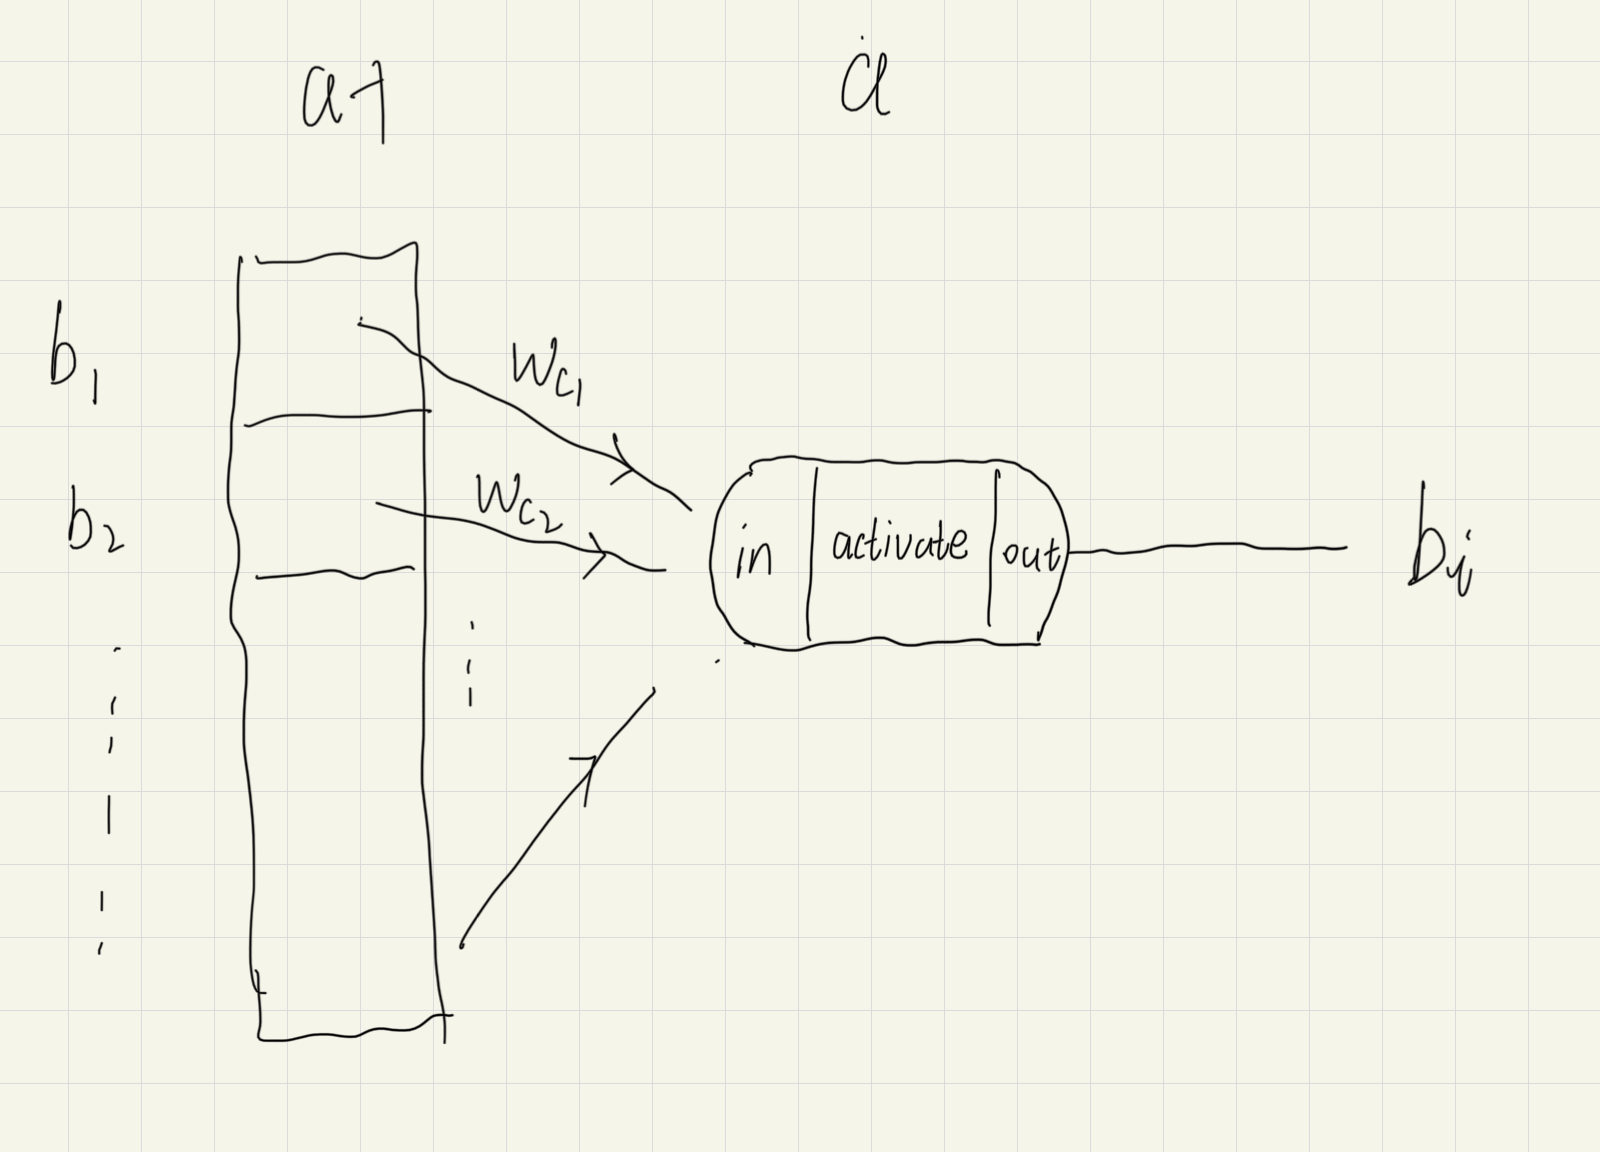 a-1
a
b1
Wc1
b2
Wc2
in activate out
bi